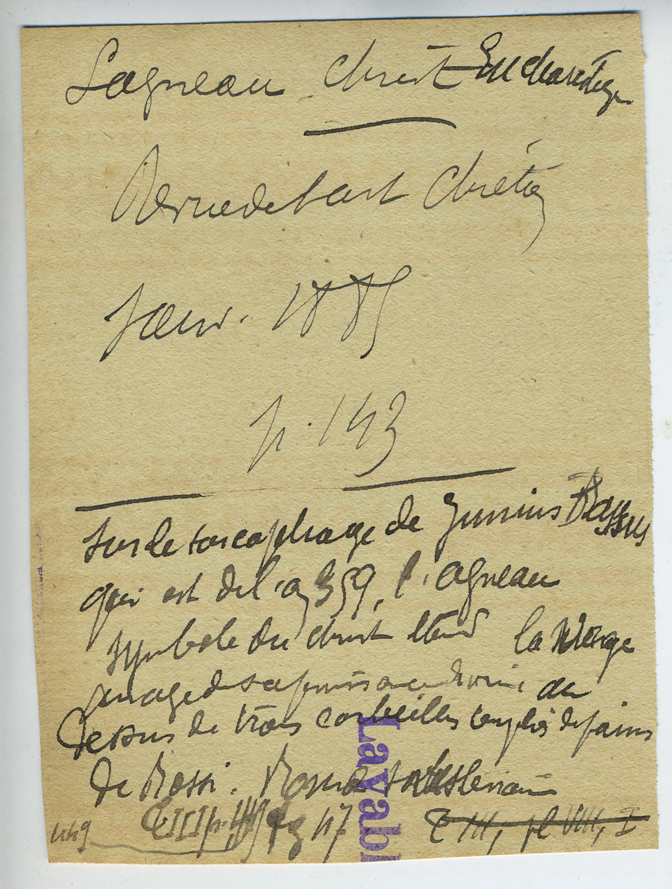 L'agneau Christ Eucharistique
Revue de l'art chrétien
Janv. 1885
p. 143
Sur le sarcophage de Junius Bassus
qui est de l'an 359, l'agneau
symbole du christ étend la verge
image de sa puissance divine au
dessus de trois corbeilles remplies de pains
de Rossi. Roma sotterranea
T III, pl VIII, I
fig 47
449
Lavabl